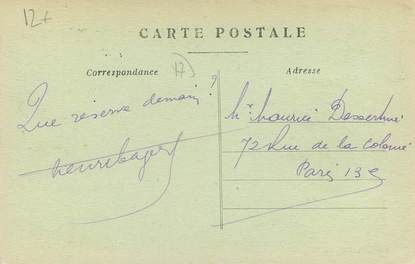 12€
CARTE POSTALE
Correspondance
17
Adresse
Que réserve demain ?
Mr Maurice
72 Rue de la Colonie
Paris 13e